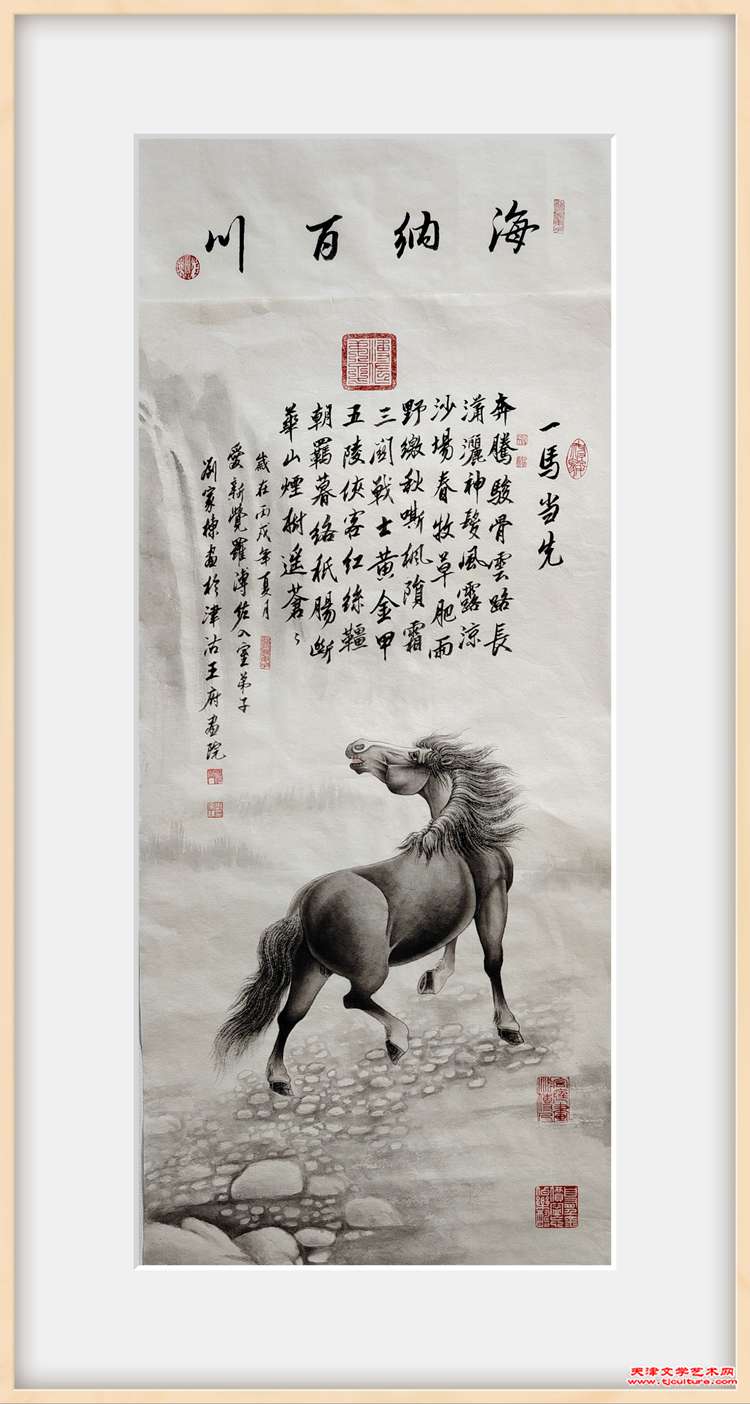 海納百川
一馬当先
奔騰駿骨雲路長
瀟灑神鬉風露涼
沙場春牧草肥雨
野繳秋嘶楓隕霜
三関戰士黄金甲
五陵俠客紅絲韁
朝羈暮絡祇腸斷
華山煙樹遥蒼々
歲在丙戌年夏月
愛新覺羅溥佐入室弟子
劉家棟畫於津沽王府畫院
天津文学艺术网
www.tjculture.com